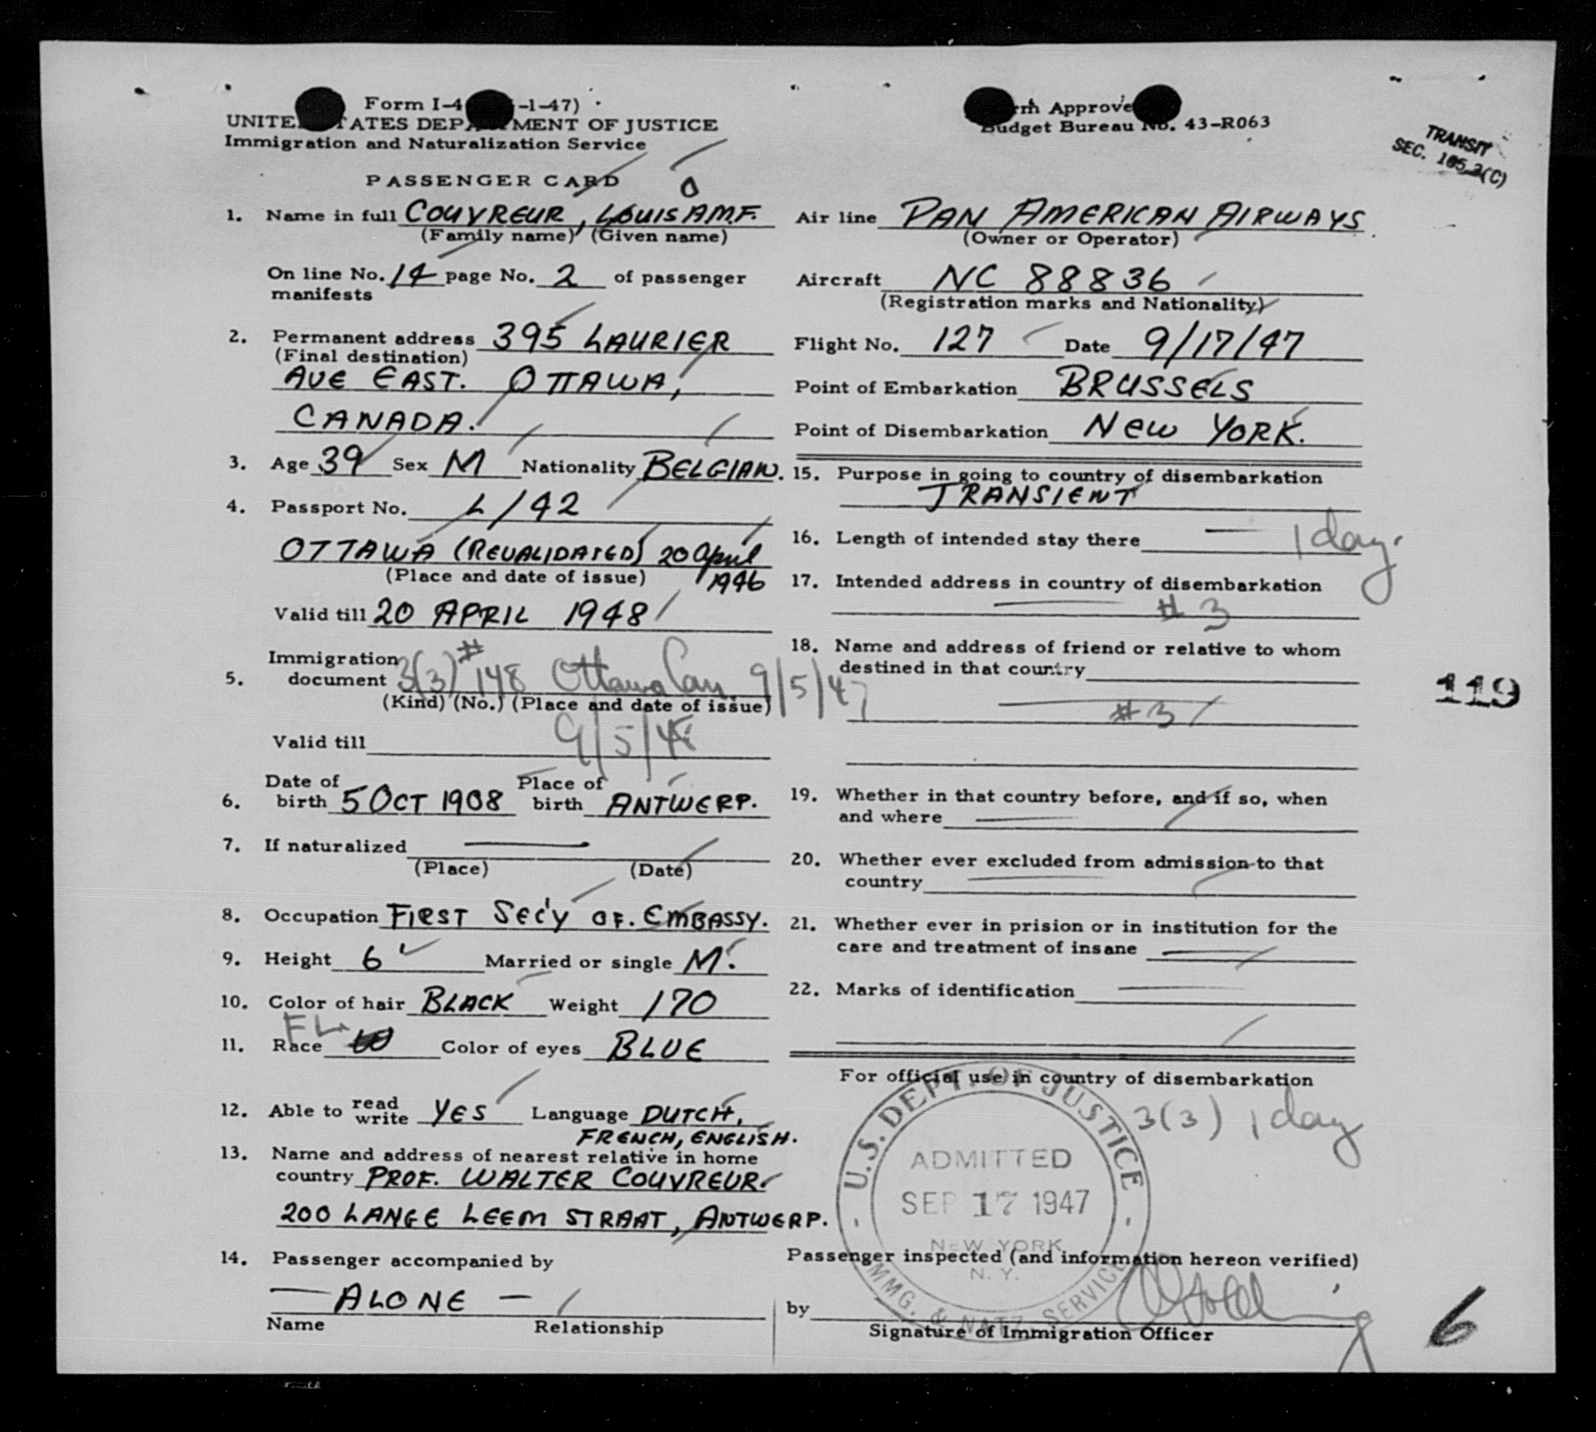 Form I-4 -1-47)
UNITE ATES DEP MENT OF JUSTICE
Immigration and Naturalization Service
PASSENGER CARD
rm Approve
Budget Bureau No. 43-R063
TRANSIT
SEC. 105.3(C)
1. Name in full COUVREUR, LOUIS A.M.F.
(Family name) (Given name)
On line No. 14 page No. 2 of passenger
manifests
2. Permanent address 395 LAURIER
(Final destination)
AVE EAST. OTTAWA,
CANADA.
3. Age 39 Sex M Nationality BELGIAN.
4. Passport No. L/42
OTTAWA (REVALIDATED) 20 April
1946
(Place and date of issue)
Valid till 20 APRIL 1948
Immigration
5. document 3(3) #148 Ottawa Can 9/5/47
(Kind) (No.) (Place and date of issue)
Valid till 9/5/48
6. Date of birth 5 OCT 1908 Place of birth ANTWERP.
7. If naturalized
(Place) (Date)
8. Occupation FIRST SEC'Y OF. EMBASSY.
9. Height 6' Married or single M.
10. Color of hair BLACK Weight 170
FL
11. Race Color of eyes BLUE
12. Able to read write YES Language DUTCH,
FRENCH, ENGLISH.
13. Name and address of nearest relative in home
country PROF. WALTER COUVREUR
200 LANGE LEEM STRAAT, ANTWERP.
14. Passenger accompanied by
— ALONE —
Name Relationship
Air line PAN AMERICAN AIRWAYS
(Owner or Operator)
Aircraft NC 88836
(Registration marks and Nationality)
Flight No. 127 Date 9/17/47
Point of Embarkation BRUSSELS
Point of Disembarkation NEW YORK.
15. Purpose in going to country of disembarkation
TRANSIENT
16. Length of intended stay there — 1 day.
17. Intended address in country of disembarkation
— #3
18. Name and address of friend or relative to whom
destined in that country
— #3
19. Whether in that country before, and if so, when
and where —
20. Whether ever excluded from admission to that
country —
21. Whether ever in prision or in institution for the
care and treatment of insane —
22. Marks of identification —
For official use in country of disembarkation
3(3) 1 day
U.S. DEPT. OF JUSTICE
ADMITTED
SEP 17 1947
NEW YORK
N. Y.
IMMG. & NATZ. SERVICE
Passenger inspected (and information hereon verified)
by
Signature of Immigration Officer
119
6